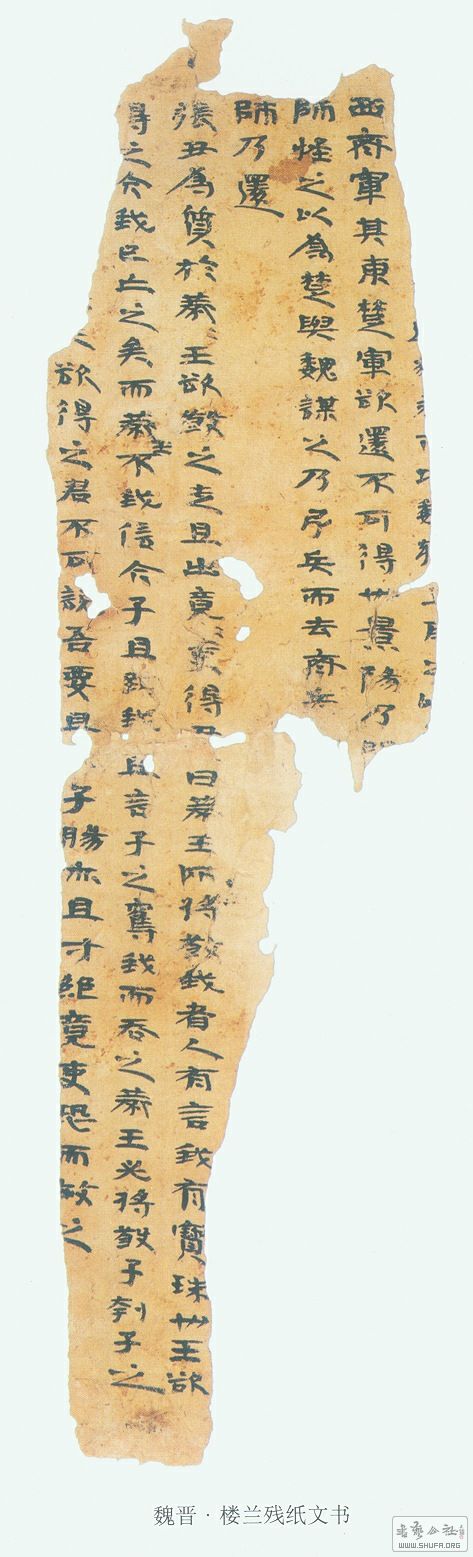 西齊軍其東楚軍欲還不可得也景陽乃
師怪之以為楚與魏謀之乃引兵而去齊兵
師乃還
張丑為質於燕〻王欲殺之走且出竟〻吏得丑曰燕王所將殺我者人有言我有寶珠也王欲
得之今我已亡之矣而燕王不我信今子且致我我且言子之奪我而吞之燕王必將殺子刳子之
欲得之君不可說吾要且子腸亦且寸絕竟吏恐而赦之
魏晋·楼兰残纸文书
书艺公社
WWW.SHUFA.ORG